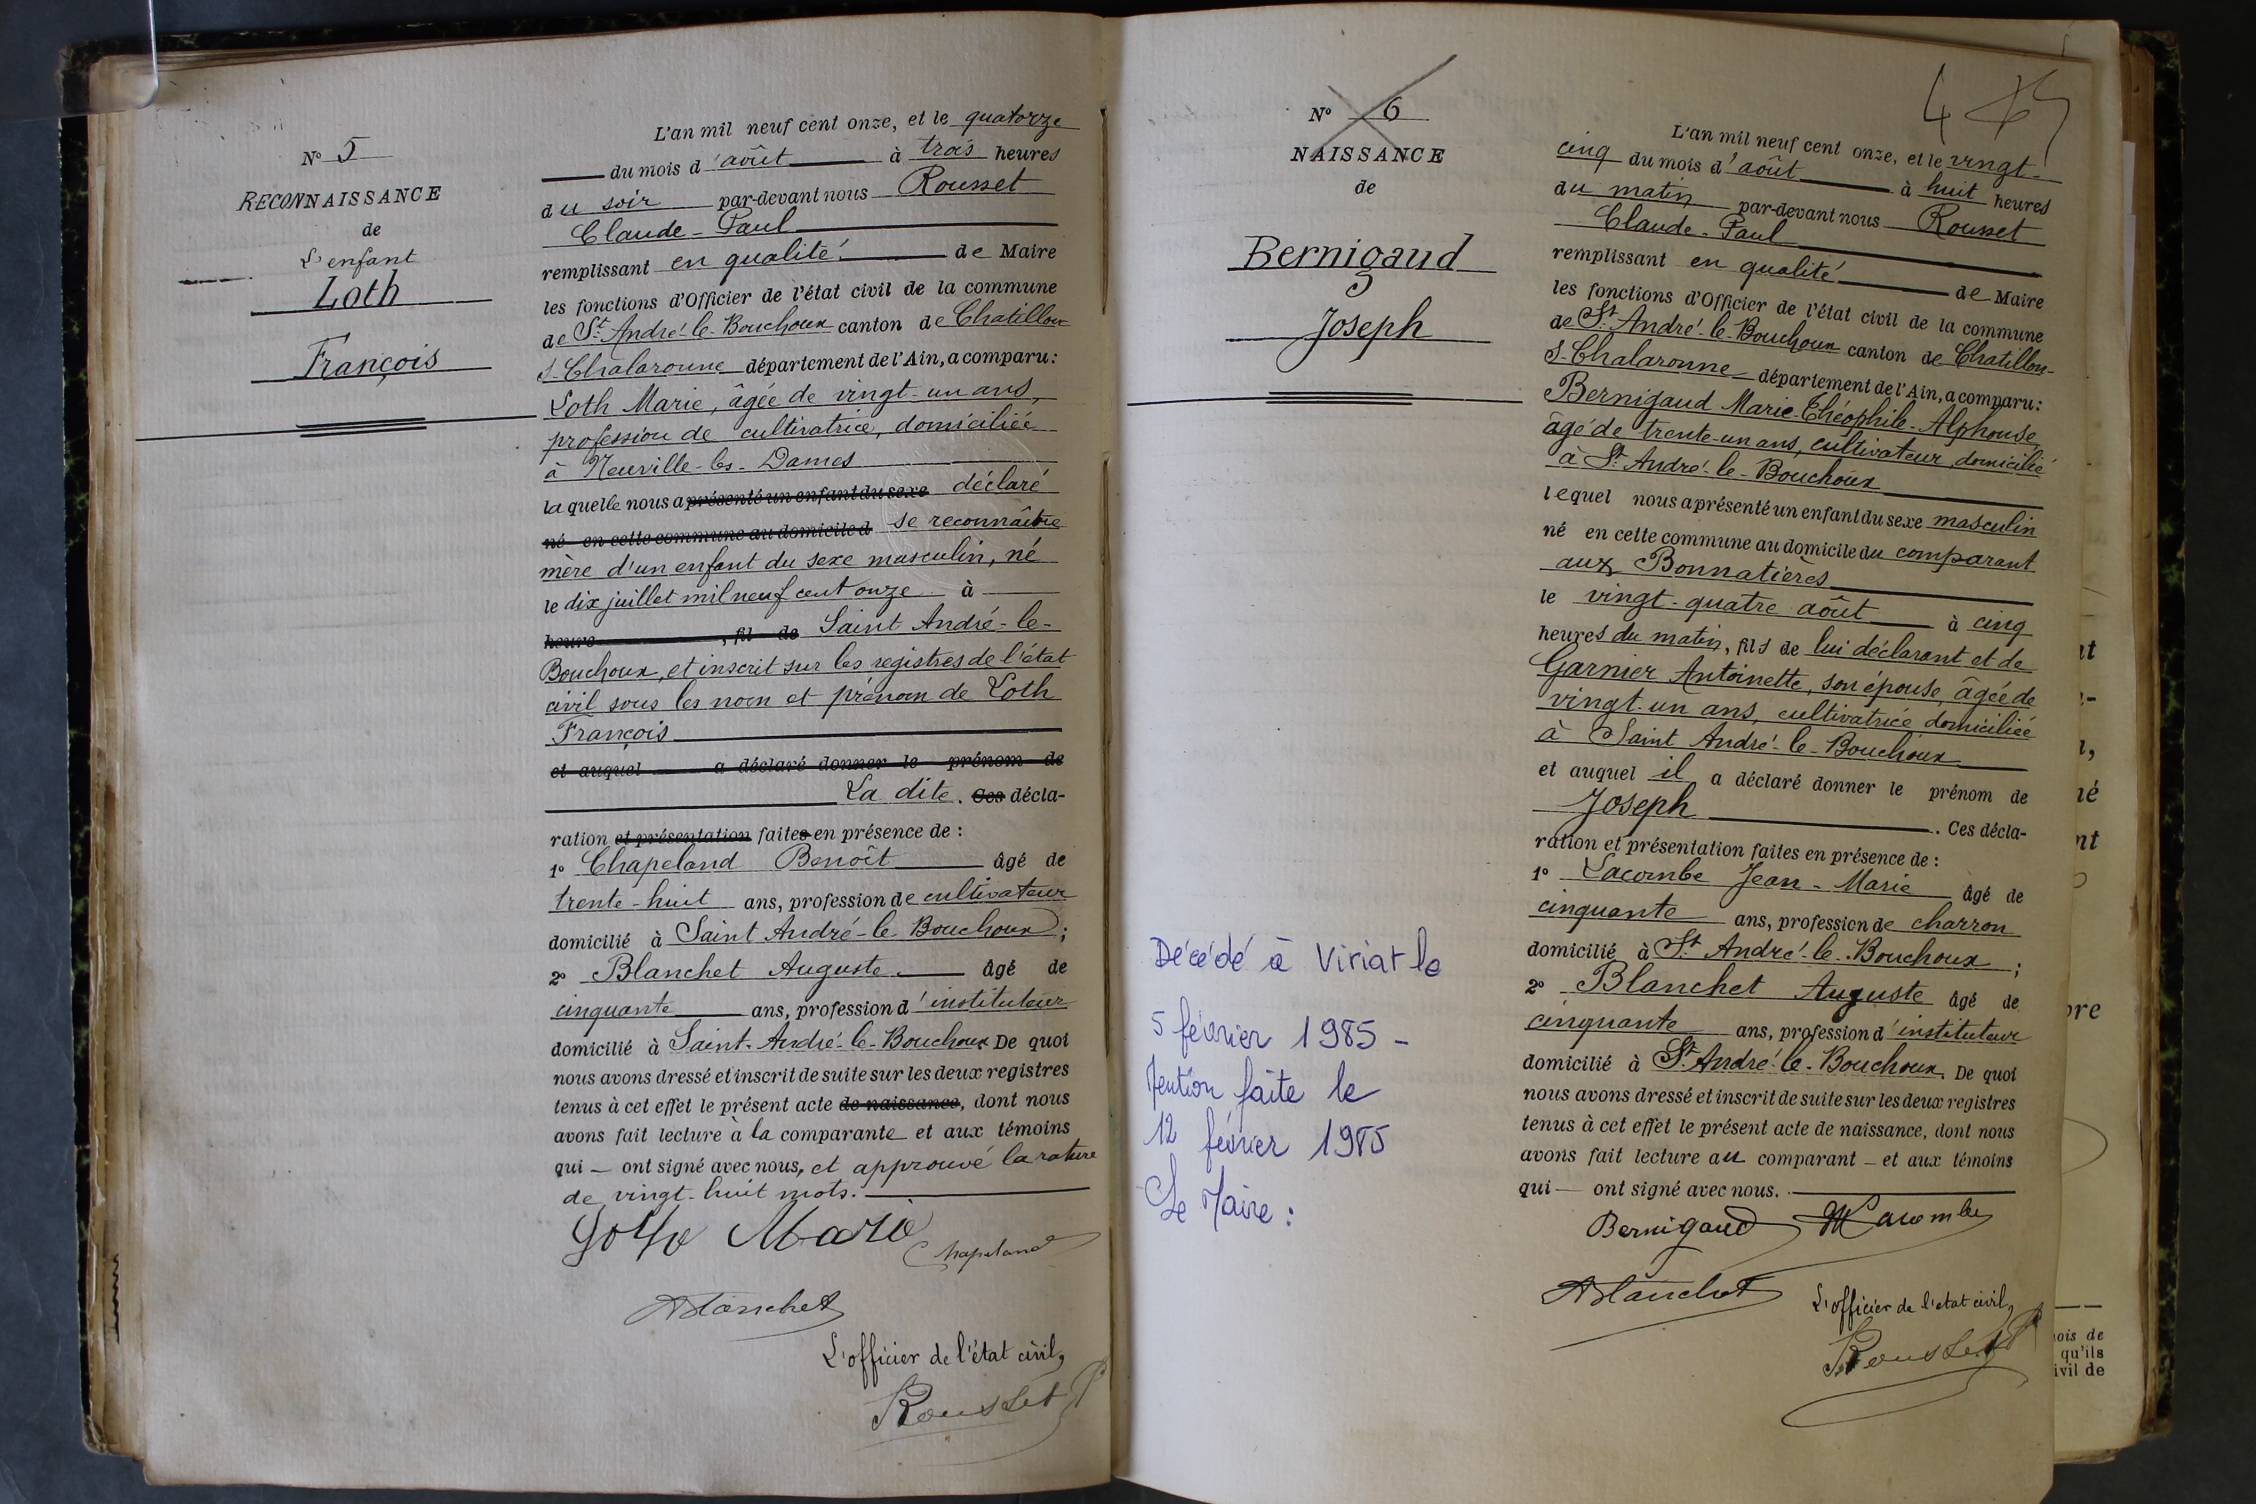 N° 5
RECONNAISSANCE
de
L'enfant
Loth
François
L'an mil neuf cent onze, et le quatorze
du mois d'août à trois heures
du soir par-devant nous Rousset
Claude-Paul
remplissant en qualité de Maire
les fonctions d'Officier de l'état civil de la commune
de St André-le-Bouchoux canton de Chatillon
s-Chalaronne département de l'Ain, a comparu :
Loth Marie, âgée de vingt-un ans,
profession de cultivatrice, domiciliée
à Neuville-les-Dames
laquelle nous a présenté un enfant du sexe déclaré
né en cette commune au domicile d se reconnaître
mère d'un enfant du sexe masculin, né
le dix juillet mil neuf cent onze à
heure , fil de Saint André-le-
Bouchoux, et inscrit sur les registres de l'état
civil sous les nom et prénom de Loth
François
et auquel a déclaré donner le prénom de
La dite. Ces décla-
ration et présentation faites en présence de :
1° Chapeland Benoît âgé de
trente-huit ans, profession de cultivateur
domicilié à Saint André-le-Bouchoux ;
2° Blanchet Auguste âgé de
cinquante ans, profession d'instituteur
domicilié à Saint-André-le-Bouchoux De quoi
nous avons dressé et inscrit de suite sur les deux registres
tenus à cet effet le présent acte de naissance, dont nous
avons fait lecture à la comparante et aux témoins
qui — ont signé avec nous, et approuvé la rature
de vingt-huit mots.
Loth Marie
Chapeland
ABlanchet
L'officier de l'état civil,
Rousset
N° 6
NAISSANCE
de
Bernigaud
Joseph
Décédé à Viriat le
5 février 1985 -
Mention faite le
12 février 1985
Le Maire :
L'an mil neuf cent onze, et le vingt-
cinq du mois d'août à huit heures
du matin par-devant nous Rousset
Claude-Paul
remplissant en qualité de Maire
les fonctions d'Officier de l'état civil de la commune
de St André-le-Bouchoux canton de Chatillon-
s-Chalaronne département de l'Ain, a comparu :
Bernigaud Marie-Théophile-Alphonse
âgé de trente-un ans, cultivateur, domicilié
à St André-le-Bouchoux
lequel nous a présenté un enfant du sexe masculin
né en cette commune au domicile du comparant
aux Bonnatières
le vingt-quatre août à cinq
heures du matin, fils de lui déclarant et de
Garnier Antoinette, son épouse, âgée de
vingt-un ans, cultivatrice domiciliée
à Saint André-le-Bouchoux
et auquel il a déclaré donner le prénom de
Joseph . Ces décla-
ration et présentation faites en présence de :
1° Lacombe Jean-Marie âgé de
cinquante ans, profession de charron
domicilié à St André-le-Bouchoux ;
2° Blanchet Auguste âgé de
cinquante ans, profession d'instituteur
domicilié à St André-le-Bouchoux. De quoi
nous avons dressé et inscrit de suite sur les deux registres
tenus à cet effet le présent acte de naissance, dont nous
avons fait lecture au comparant — et aux témoins
qui — ont signé avec nous.
Bernigaud Lacombe
ABlanchet
L'officier de l'état civil,
Rousset
ois de
qu'ils
ivil de